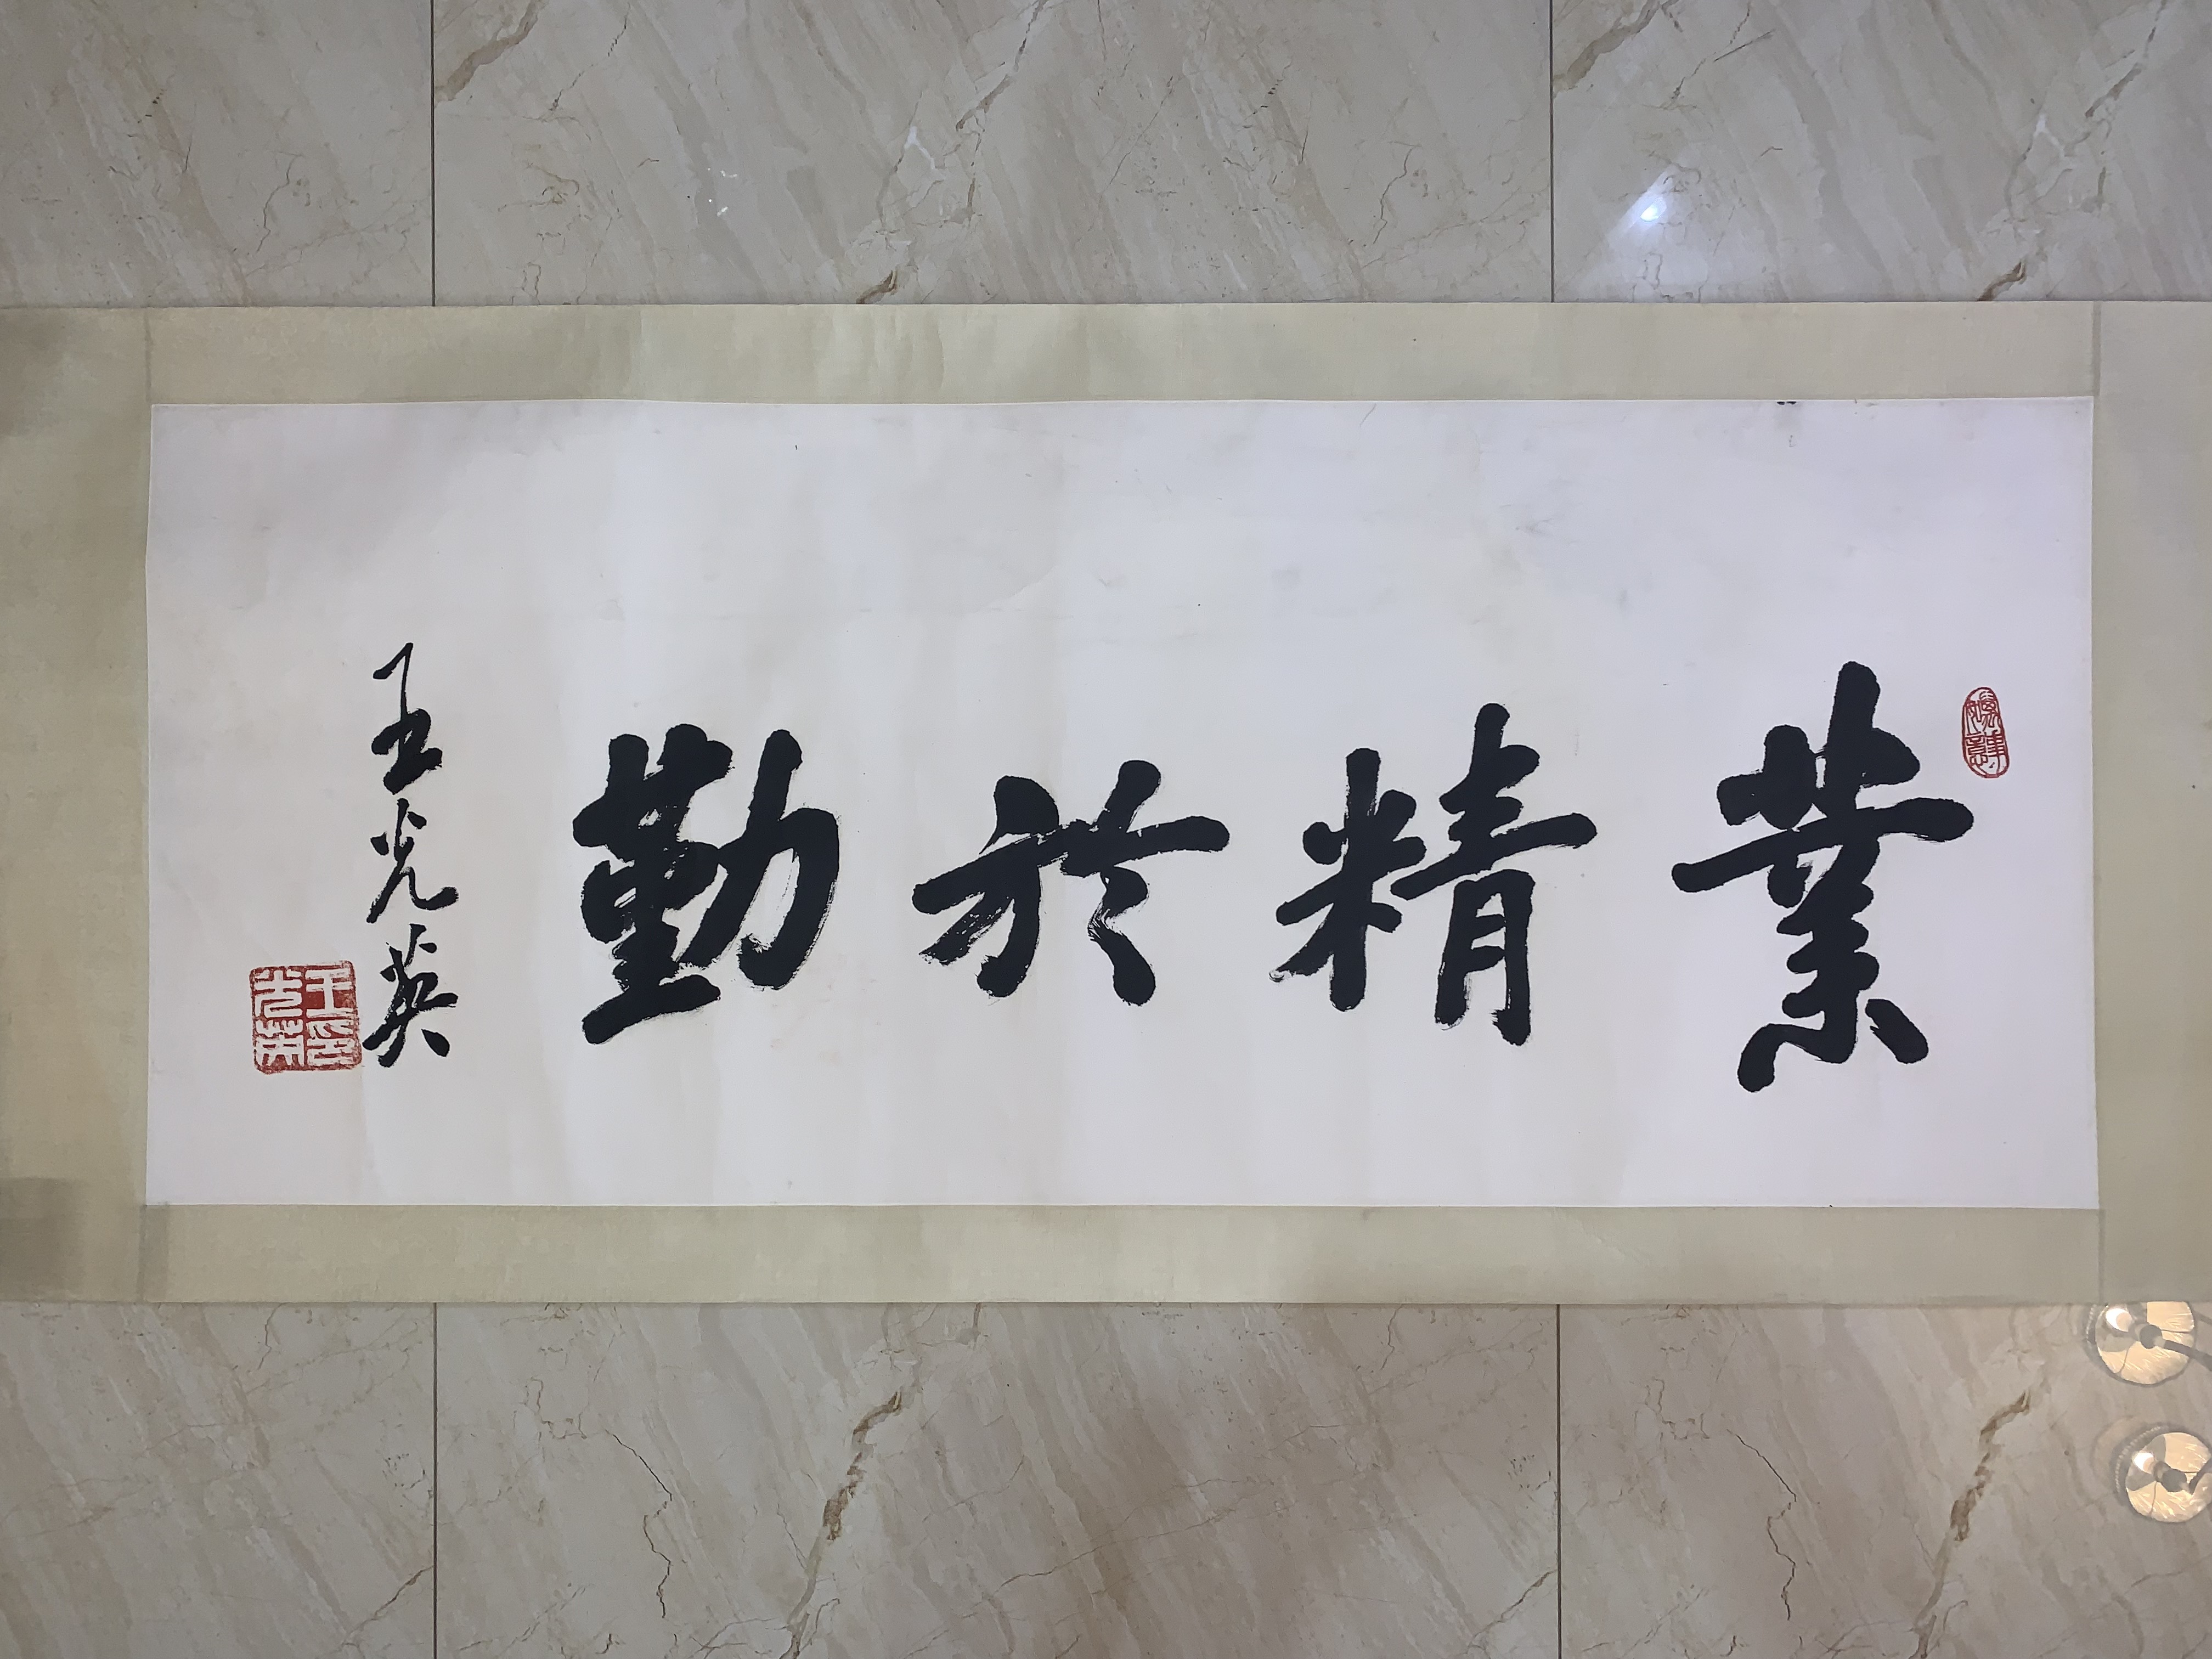 業精於勤
王光英
王光英印